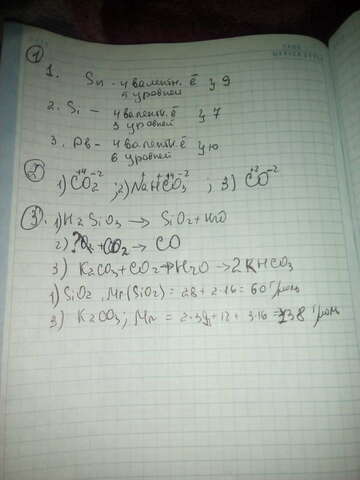 ①
1. Sn - 4 валентн. ē } 9
5 уровней
2. Si - 4 валентн. ē } 7
3 уровней
3. Pb - 4 валентн. ē } 10
6 уровней
② 1) C⁺⁴O₂⁻² ; 2) Na⁺H⁺C⁺⁴O₃⁻² ; 3) C⁺²O⁻²
③ 1) H₂SiO₃ → SiO₂ + H₂O
2) + CO₂ → CO
3) K₂CO₃ + CO₂ + H₂O → 2KHCO₃
1) SiO₂, Mr(SiO₂) = 28 + 2·16 = 60 г/моль
3) K₂CO₃; Mr = 2·39 + 12 + 3·16 = 138 г/моль